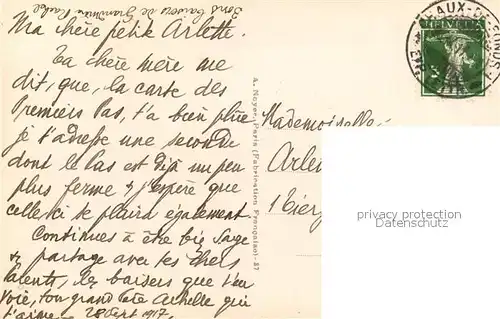 Bons baisers de Grand'mère Rachel
Ma chère petite Arlette.
Ta chère mère me
dit, que, la carte des
Premiers Pas, t'a bien plûe
je t'adresse une seconde
dont le Pas est déjà un peu
plus ferme & j'espère que
celle-ci te plaira également.
Continues à être bien sage
& partage avec tes chers
Parents, les baisers que t'en
voie, ton grand Papa Achille qui
t'aime 28 Sept 1917.
A. Noyer, Paris (Fabrication Française)-57
Mademoiselle
Arle
HELVETIA
AUX-DE-FONDS
privacy protection
Dealer AnsichtskartenVersand.com